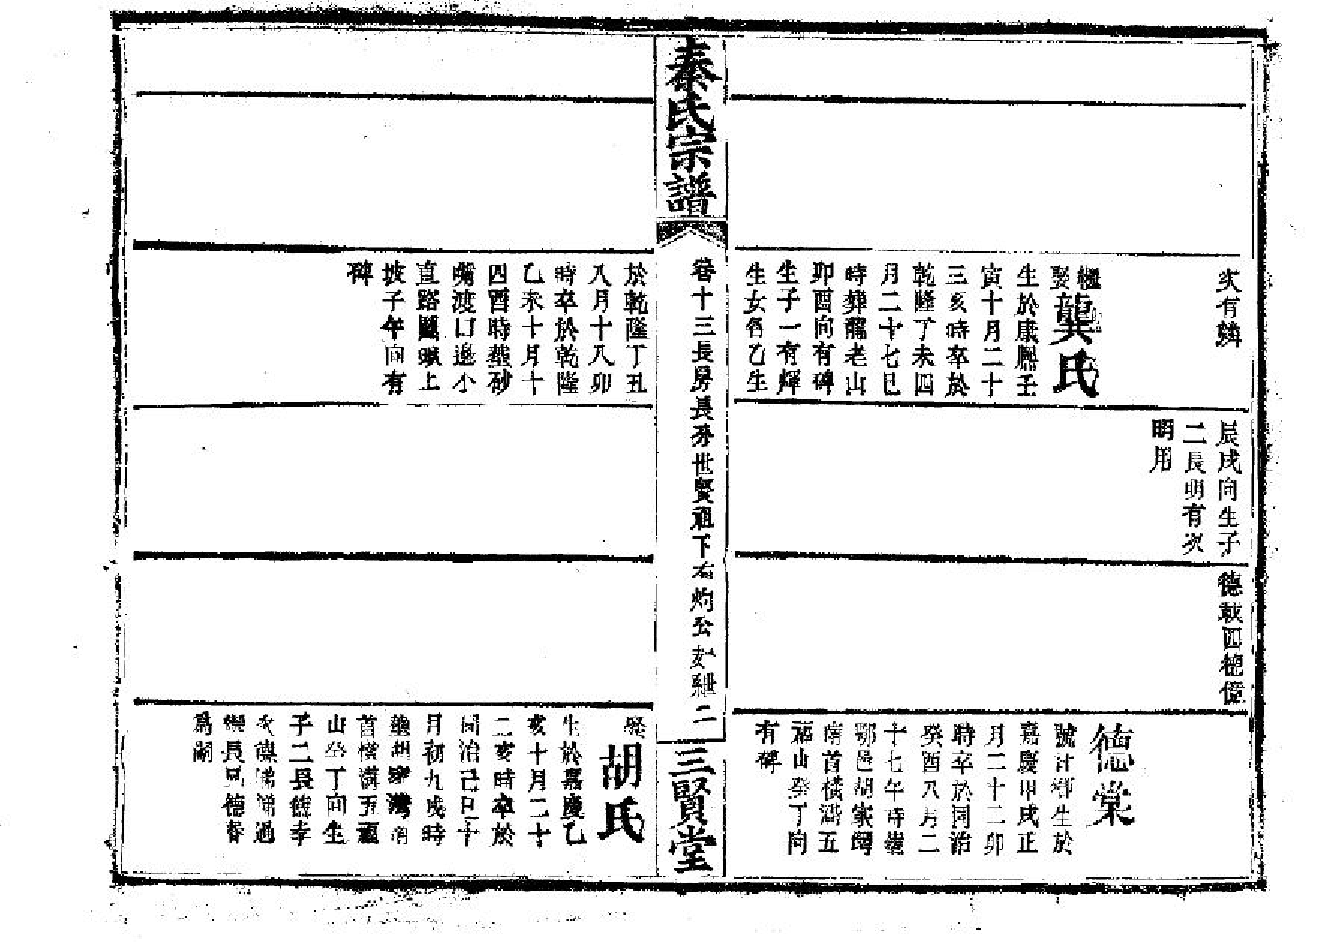 次有鱗
繼娶龔氏
生於康熙壬
寅十月二十
三亥時卒於
乾隆丁未四
月二十七巳
時葬龍老山
卯酉向有碑
生子一有輝
生女名乙生
辰戌向生子
二長明有次
明用
德
德棠
號計鄉生於
嘉慶甲戌正
月二十二卯
時卒於同治
癸酉八月二
十七午時葬
鄂邑胡家
南首橫溝五
福山癸丁向
有碑
秦氏宗譜
卷十三長房長分世賢祖下有灼公
二
三賢堂
於乾隆丁丑
八月十八卯
時卒於乾隆
乙未十月十
四酉時葬砂
嘴渡口邊小
直路圖上
坡子午向有
碑
娶胡氏
生於嘉慶乙
亥十月二十
二亥時卒於
同治己巳十
月初九戌時
葬胡家灣南
首橫溝五福
山癸丁向生
子二長
次德
德春
爲嗣